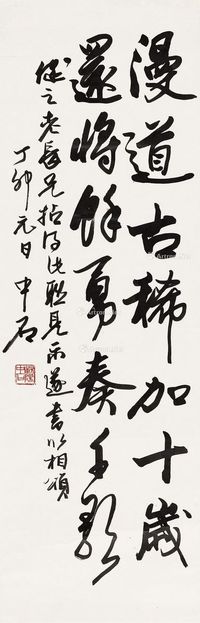 漫道古稀加十歲
還將餘勇奏千歌
之老長兄拈得此聯見示遂書以相頌
丁卯元日中石